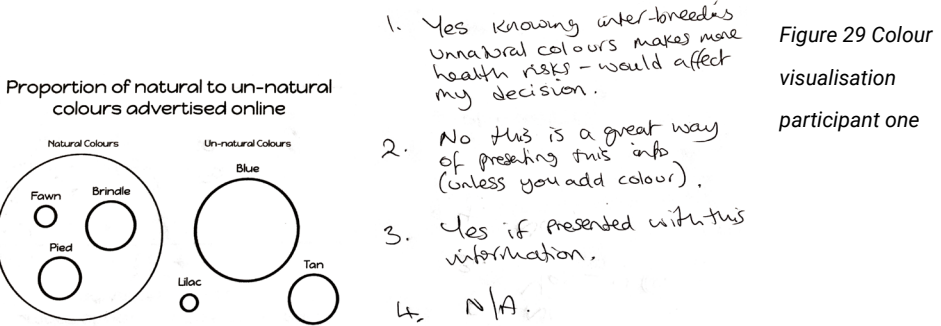 Proportion of natural to un-natural
colours advertised online
Natural Colours
Un-natural Colours
Fawn
Brindle
Pied
Blue
Lilac
Tan
1. Yes knowing inter-breeding
unnatural colours makes more
health risks - would affect
my decision.
2. No this is a great way
of presenting this info
(unless you add colour).
3. Yes if presented with this
information.
4. N/A.
Figure 29 Colour
visualisation
participant one